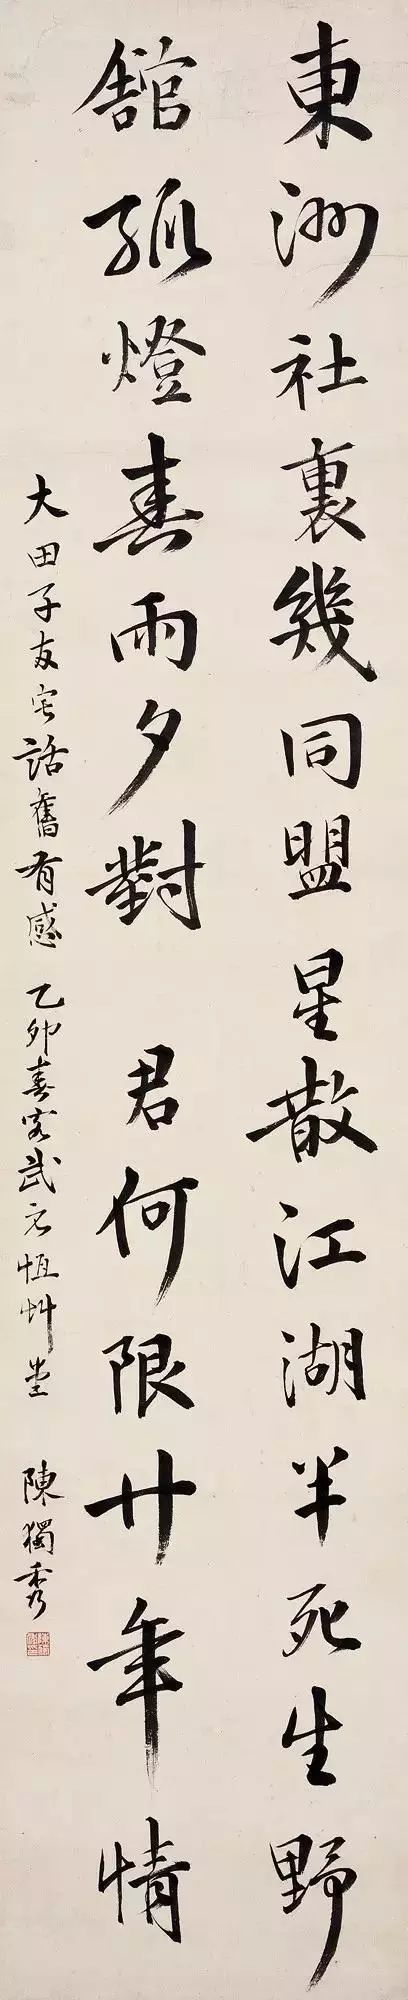 東洲社裏幾同盟星散江湖半死生野
舘孤燈春雨夕對 君何限廿年情
大田子友宅話舊有感 乙卯春客武 恒艸堂 陳獨秀